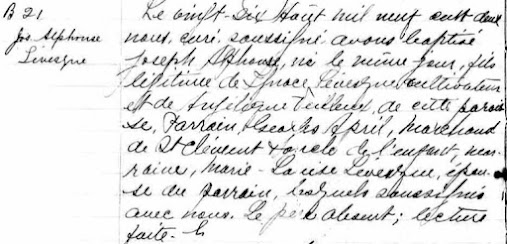 B 21
Jos. Alphonse
Levesque
Le vingt-six Août mil neuf cent deux
nous, curé soussigné avons baptisé
Joseph Alphonse, né le même jour, fils
légitime de Ignace Levesque, cultivateur
et de Angélique, de cette parois
se, Parrain, Georges April, Marchand
de St Clément & oncle de l'enfant, mar-
raine, Marie-Louise Levesque, épou-
se du parrain, lesquels soussignés
avec nous. Le père absent; lecture
faite.